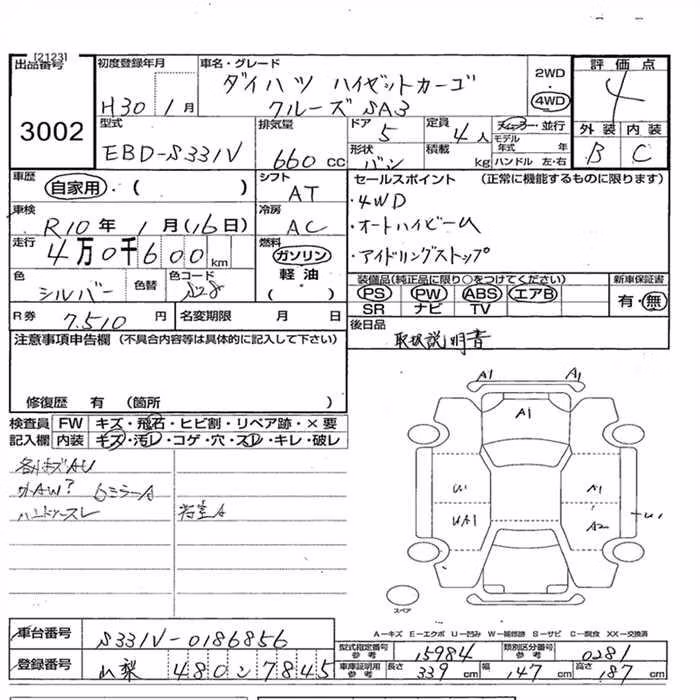 [2123]
出品番号
3002
初度登録年月
H30年1月
車名・グレード
ダイハツ ハイゼットカーゴ
クルーズSA3
2WD
4WD
評価点
4
外装 内装
B C
型式
EBD-S331V
排気量
660cc
ドア
5
形状
バン
定員
4人
積載 kg
ディーラー・並行
モデル年式 年
ハンドル 左・右
車歴
自家用・( )
シフト
AT
車検
R10年1月(16日)
冷房
AC
走行
4万0千600km
燃料
ガソリン
軽油
( )
色
シルバー
色替
色コード
S28
R券
7,510円
名変期限 月 日
セールスポイント (正常に機能するものに限ります)
・4WD
・オートハイビーム
・アイドリングストップ
装備品(純正品に限り○をつけてください)
PS PW ABS エアB
SR ナビ TV
新車保証書
有・無
後日品
取扱説明書
注意事項申告欄 (不具合内容等は具体的に記入して下さい)
修復歴 有 (箇所 )
検査員記入欄
FW キズ・飛石・ヒビ割・リペア跡・×要
内装 キズ・汚レ・コゲ・穴・スレ・キレ・破レ
各小キズAU
外AW? 6ミラーA
ハンドルスレ
荷室A
A1 A1
A1
U1 A1
UA1 A2
U1
スペア
A―キズ E―エクボ U―凹み W―補修跡 S―サビ C―腐食 XX―交換済
車台番号
S331V-0186856
登録番号
山梨 480 ン 7845
型式指定番号 参考
15984
類別区分番号 参考
0281
車庫証明用 参考
長さ 339 cm 幅 147 cm 高さ 187 cm